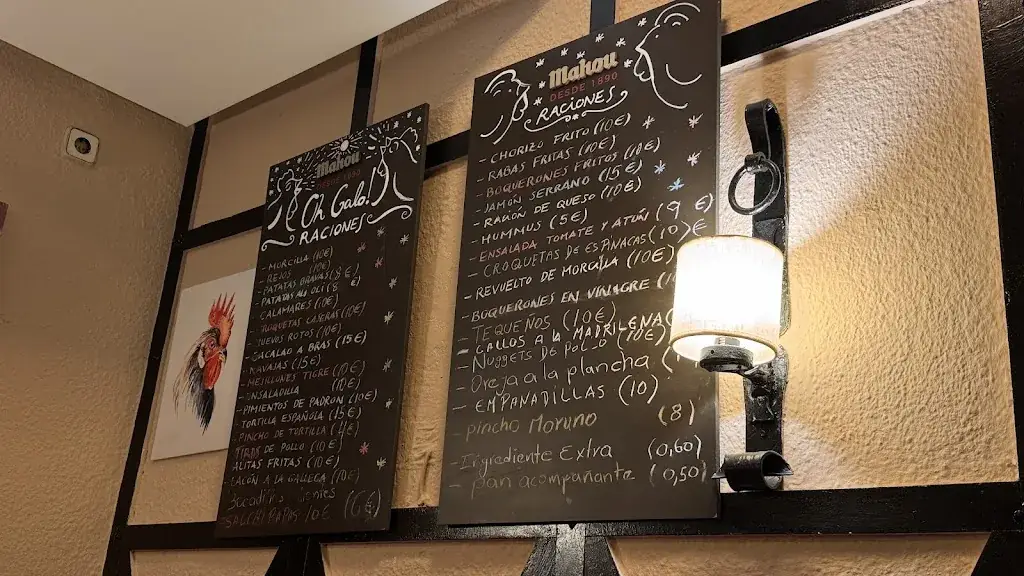 Mahou
Oh Galo!
RACIONES
- MORCILLA (10€)
- REJOS (10€)
- PATATAS BRAVAS (8€)
- PATATAS ALI OLI (8€)
- CALAMARES (10€)
- CROQUETAS CASERAS (10€)
- HUEVOS ROTOS (10€)
- BACALAO A BRAS (15€)
- NAVAJAS (15€)
- MEJILLONES TIGRE (10€)
- ENSALADILLA (10€)
- PIMIENTOS DE PADRON (10€)
- TORTILLA ESPAÑOLA (15€)
PINCHO DE TORTILLA (4€)
TIRAS DE POLLO (10€)
ALITAS FRITAS (10€)
LACÓN A LA GALLEGA (10€)
(6€)
SALCHIPAPAS 10€
Mahou
DESDE 1890
RACIONES
- CHORIZO FRITO (10€)
- RABAS FRITAS (10€)
- BOQUERONES FRITOS (10€)
- JAMÓN SERRANO (15€)
- RACIÓN DE QUESO (10€)
- HUMMUS (5€)
- ENSALADA TOMATE Y ATÚN (9€)
- CROQUETAS DE ESPINACAS (10)€
- REVUELTO DE MORCILLA (10€)
- BOQUERONES EN VINAGRE
- TEQUEÑOS (10€)
- CALLOS A LA MADRILEÑA
- NUGGETS DE POLLO (10€)
- Oreja a la plancha (
- EMPANADILLAS (10)
- pincho Moruno (8)
- Ingrediente Extra (0,60)
- pan acompañante (0,50)